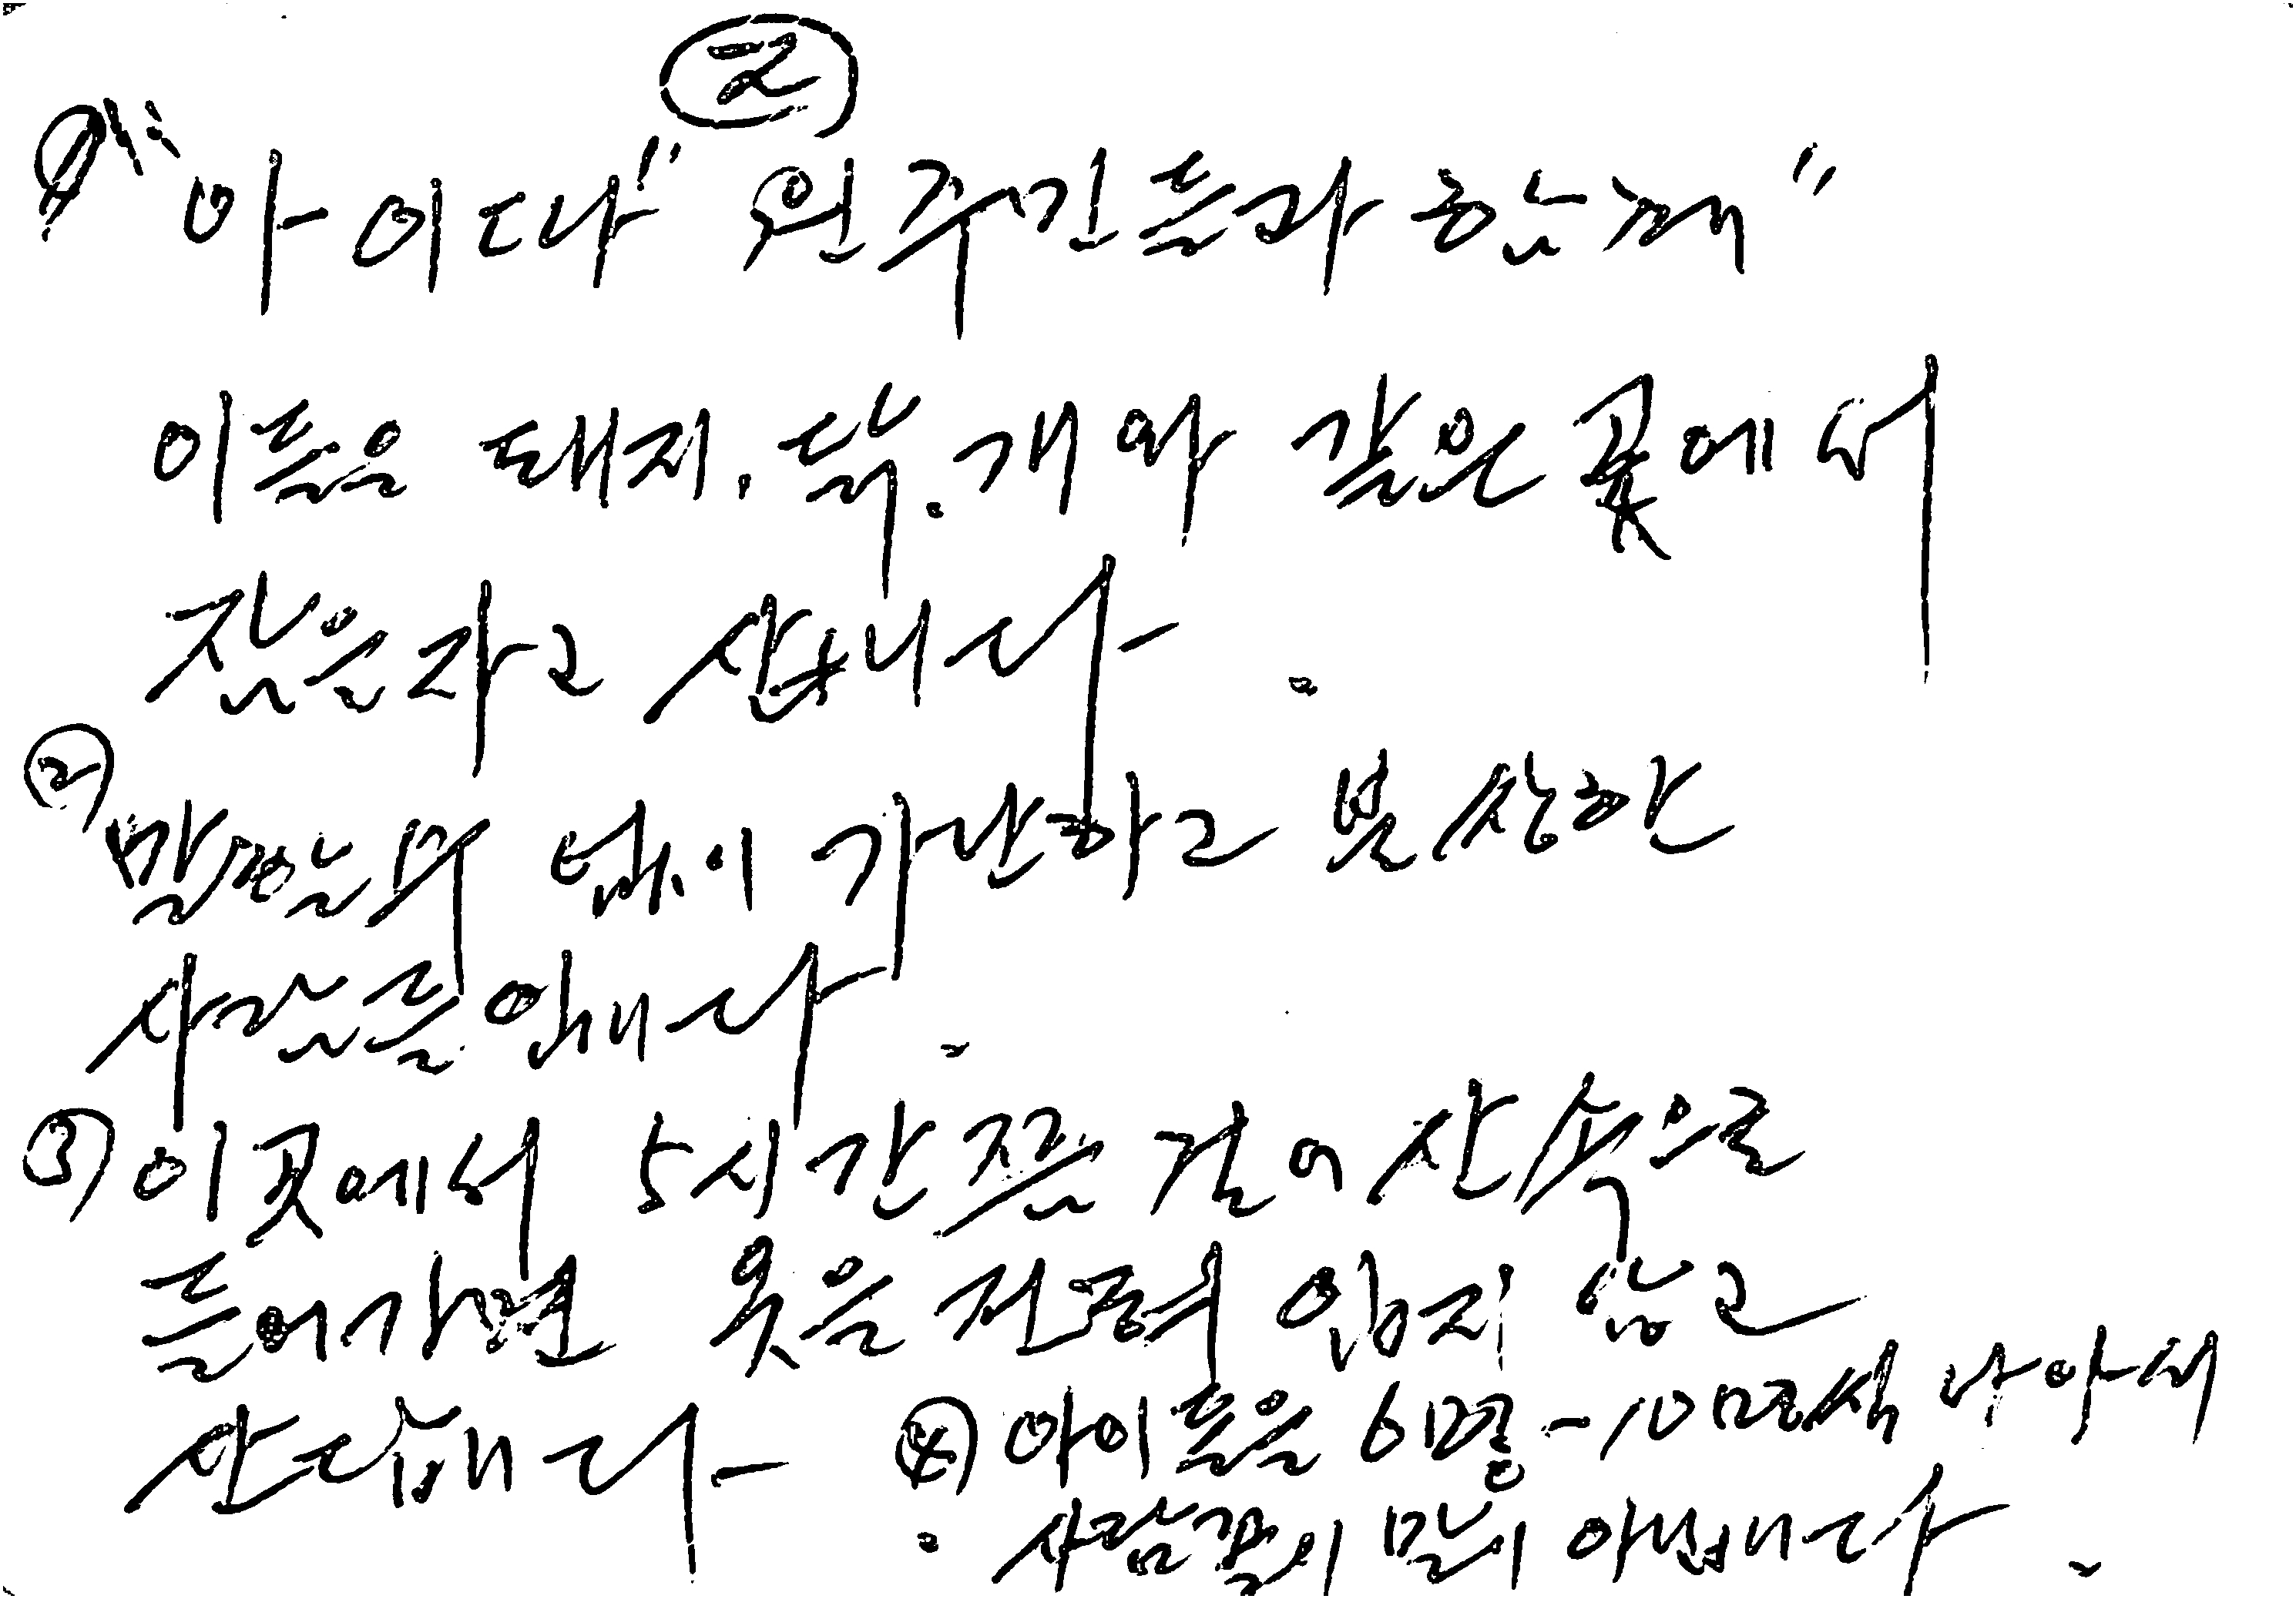 ②
① "아이다" 원주민들과 함께"
이들은 돼지. 닭. 개와 같은 곳에서
잠을 자고 삽니다.
② 말할 수 없이 가난하고 불쌍한
사람들입니다.
③ 이곳에서 5시간쯤 걸어 산속으로
들어가면 옷을 전혀 입지 않고
산답니다.
④ 아이들을 6명-10명씩 낳아서
사람꼴이 말이 아닙니다.